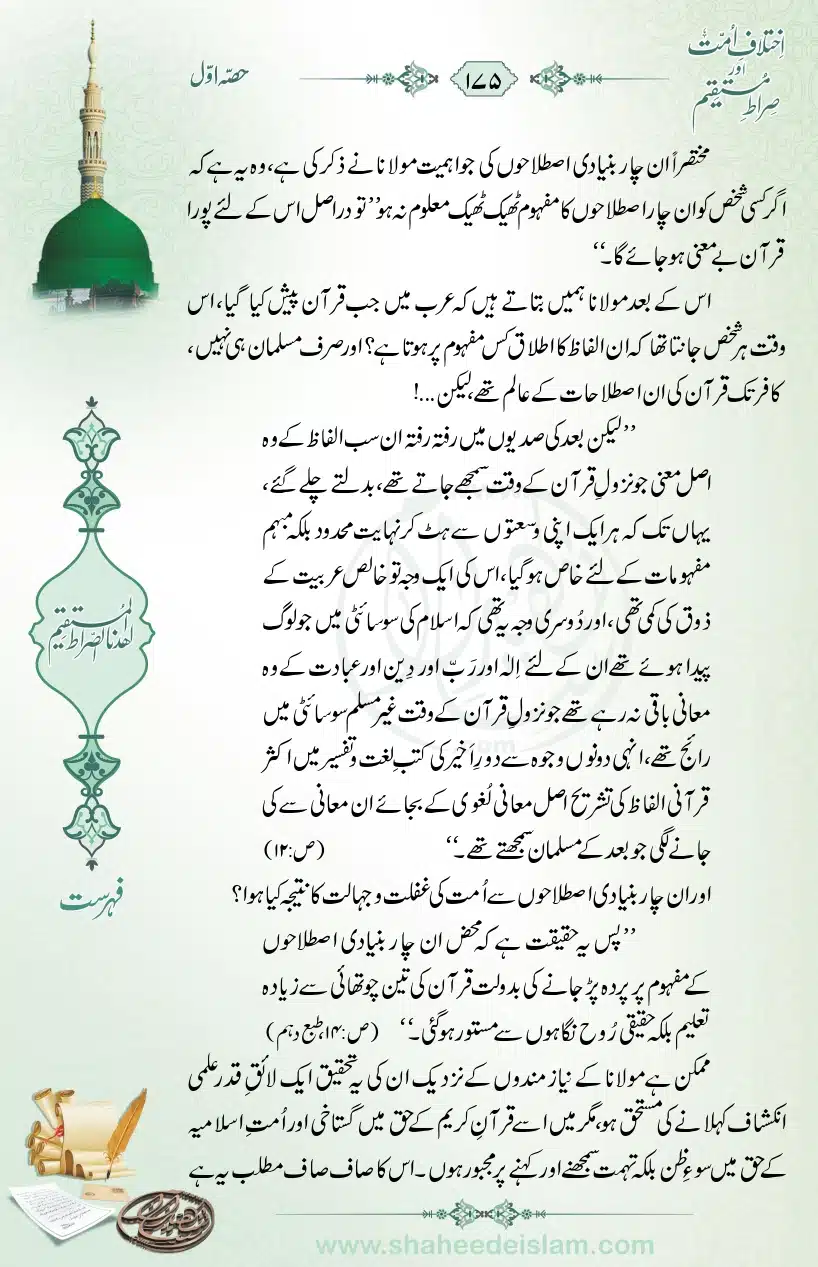 اِختلافِ اُمّت
اور
صِراطِ مُستقیم
۱۷۵
حصّہ اوّل
مختصراً ان چار بنیادی اصطلاحوں کی جو اہمیت مولانا نے ذکر کی ہے، وہ یہ ہے کہ
اگر کسی شخص کو ان چار اصطلاحوں کا مفہوم ٹھیک ٹھیک معلوم نہ ہو ’’تو دراصل اس کے لئے پورا
قرآن بے معنی ہو جائے گا۔‘‘
اس کے بعد مولانا ہمیں بتاتے ہیں کہ عرب میں جب قرآن پیش کیا گیا، اس
وقت ہر شخص جانتا تھا کہ ان الفاظ کا اطلاق کس مفہوم پر ہوتا ہے؟ اور صرف مسلمان ہی نہیں،
کافر تک قرآن کی ان اصطلاحات کے عالم تھے، لیکن...!
’’لیکن بعد کی صدیوں میں رفتہ رفتہ ان سب الفاظ کے وہ
اصل معنی جو نزولِ قرآن کے وقت سمجھے جاتے تھے، بدلتے چلے گئے،
یہاں تک کہ ہر ایک اپنی وسعتوں سے ہٹ کر نہایت محدود بلکہ مبہم
مفہومات کے لئے خاص ہو گیا، اس کی ایک وجہ تو خالص عربیت کے
ذوق کی کمی تھی، اور دُوسری وجہ یہ تھی کہ اسلام کی سوسائٹی میں جو لوگ
پیدا ہوئے تھے ان کے لئے اِلٰہ اور رَبّ اور دِین اور عبادت کے وہ
معانی باقی نہ رہے تھے جو نزولِ قرآن کے وقت غیر مسلم سوسائٹی میں
رائج تھے، انہی دونوں وجوہ سے دورِ اَخیر کی کتبِ لغت و تفسیر میں اکثر
قرآنی الفاظ کی تشریح اصل معانی لُغوی کے بجائے ان معانی سے کی
جانے لگی جو بعد کے مسلمان سمجھتے تھے۔‘‘ (ص:۱۲)
اور ان چار بنیادی اصطلاحوں سے اُمت کی غفلت و جہالت کا نتیجہ کیا ہوا؟
’’پس یہ حقیقت ہے کہ محض ان چار بنیادی اصطلاحوں
کے مفہوم پر پردہ پڑ جانے کی بدولت قرآن کی تین چوتھائی سے زیادہ
تعلیم بلکہ حقیقی رُوح نگاہوں سے مستور ہو گئی۔‘‘ (ص:۱۴، طبع دہم)
ممکن ہے مولانا کے نیاز مندوں کے نزدیک ان کی یہ تحقیق ایک لائقِ قدر علمی
انکشاف کہلانے کی مستحق ہو، مگر میں اسے قرآنِ کریم کے حق میں گستاخی اور اُمتِ اسلامیہ
کے حق میں سوءِ ظن بلکہ تہمت سمجھنے اور کہنے پر مجبور ہوں۔ اس کا صاف صاف مطلب یہ ہے
اهدنا الصّراط المُستقيم
فہرست
www.shaheedeislam.com